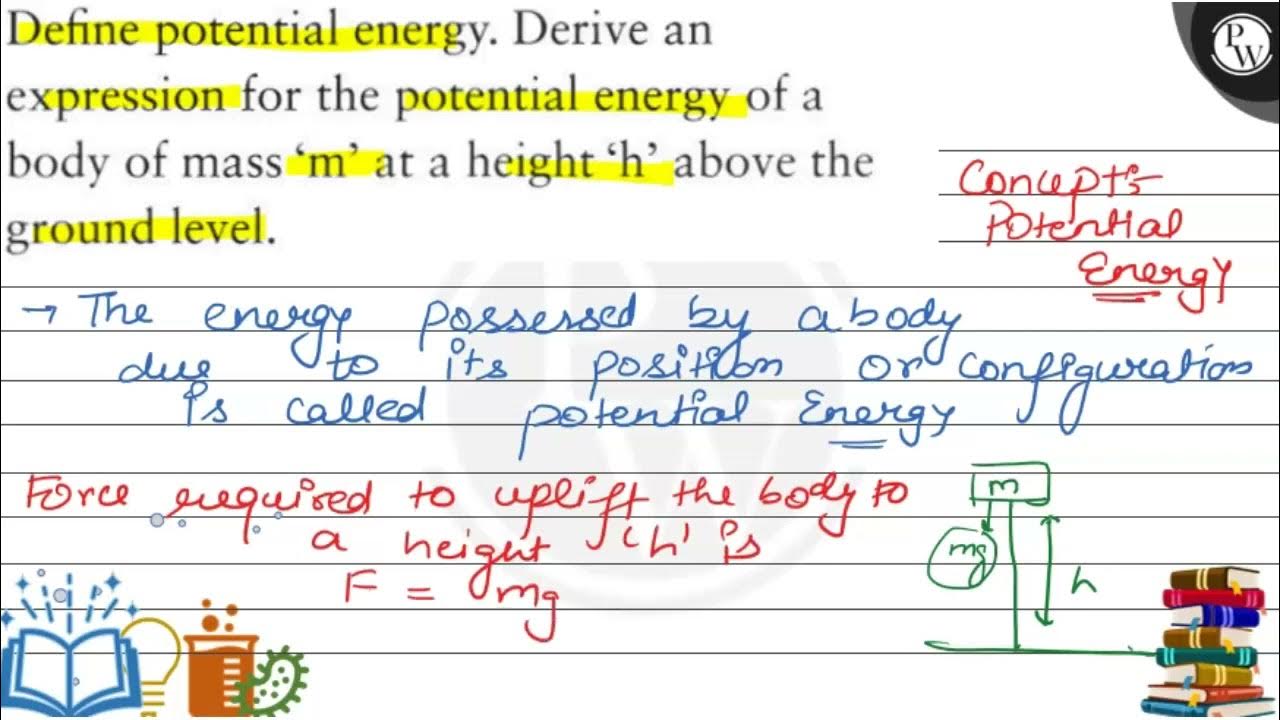 Define potential energy. Derive an
expression for the potential energy of a
body of mass ‘m’ at a height ‘h’ above the
ground level.
PW
Concept:-
Potential
Energy
→ The energy possessed by a body
due to its position or configuration
is called potential Energy
Force required to uplift the body to
a height 'h' is
F = mg
m
mg
h